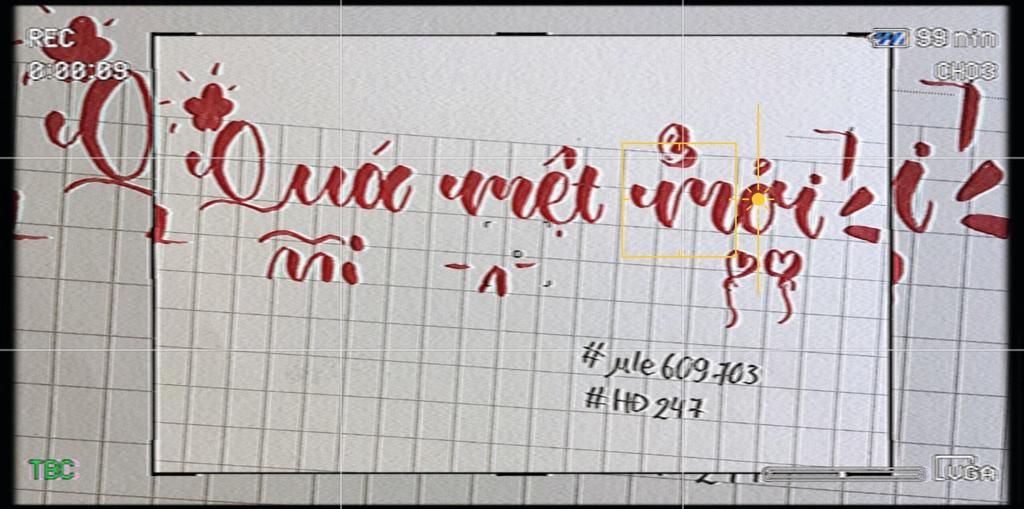 REC
0:00:09
99 min
CH03
Quóc mệt mỏi
mi -^-
#µle609.703
#HD247
TBC
VGA